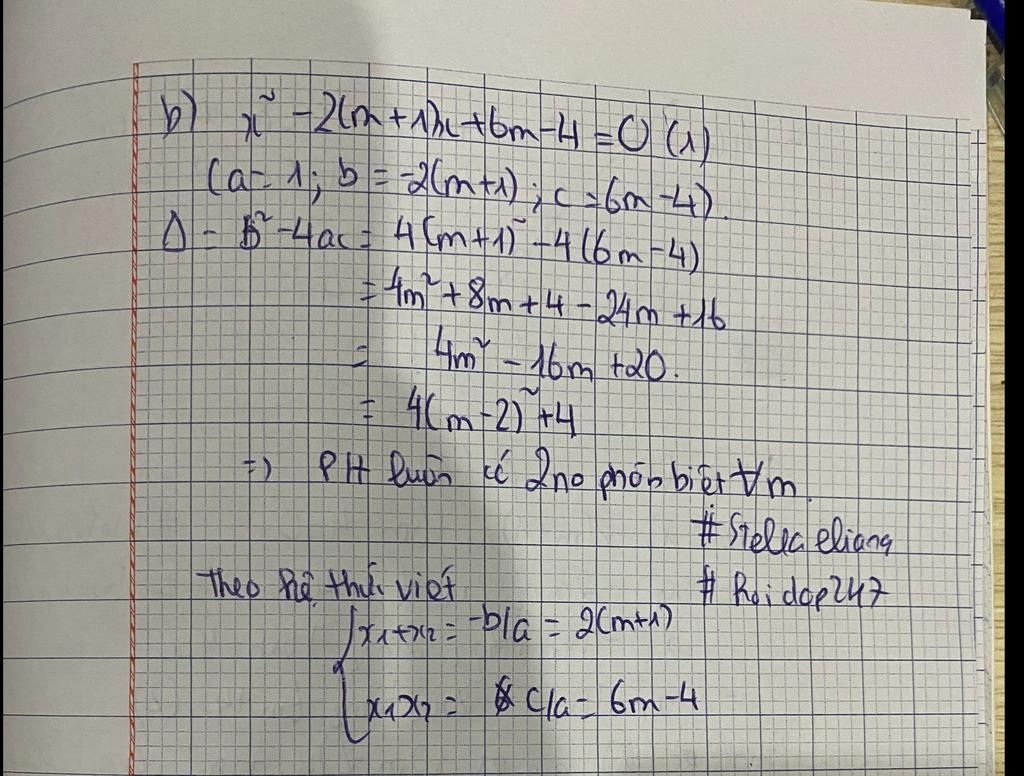 b) x² - 2(m+1)x + 6m - 4 = 0 (1)
(a = 1; b = -2(m+1); c = 6m - 4).
Δ = b² - 4ac = 4(m+1)² - 4(6m - 4)
= 4m² + 8m + 4 - 24m + 16
= 4m² - 16m + 20.
= 4(m-2)² + 4
=> PH luôn có 2 no phân biệt ∀m.
# Stella eliang
# hoidap247
Theo hệ thức viét
x₁+x₂ = -b/a = 2(m+1)
x₁x₂ = c/a = 6m - 4